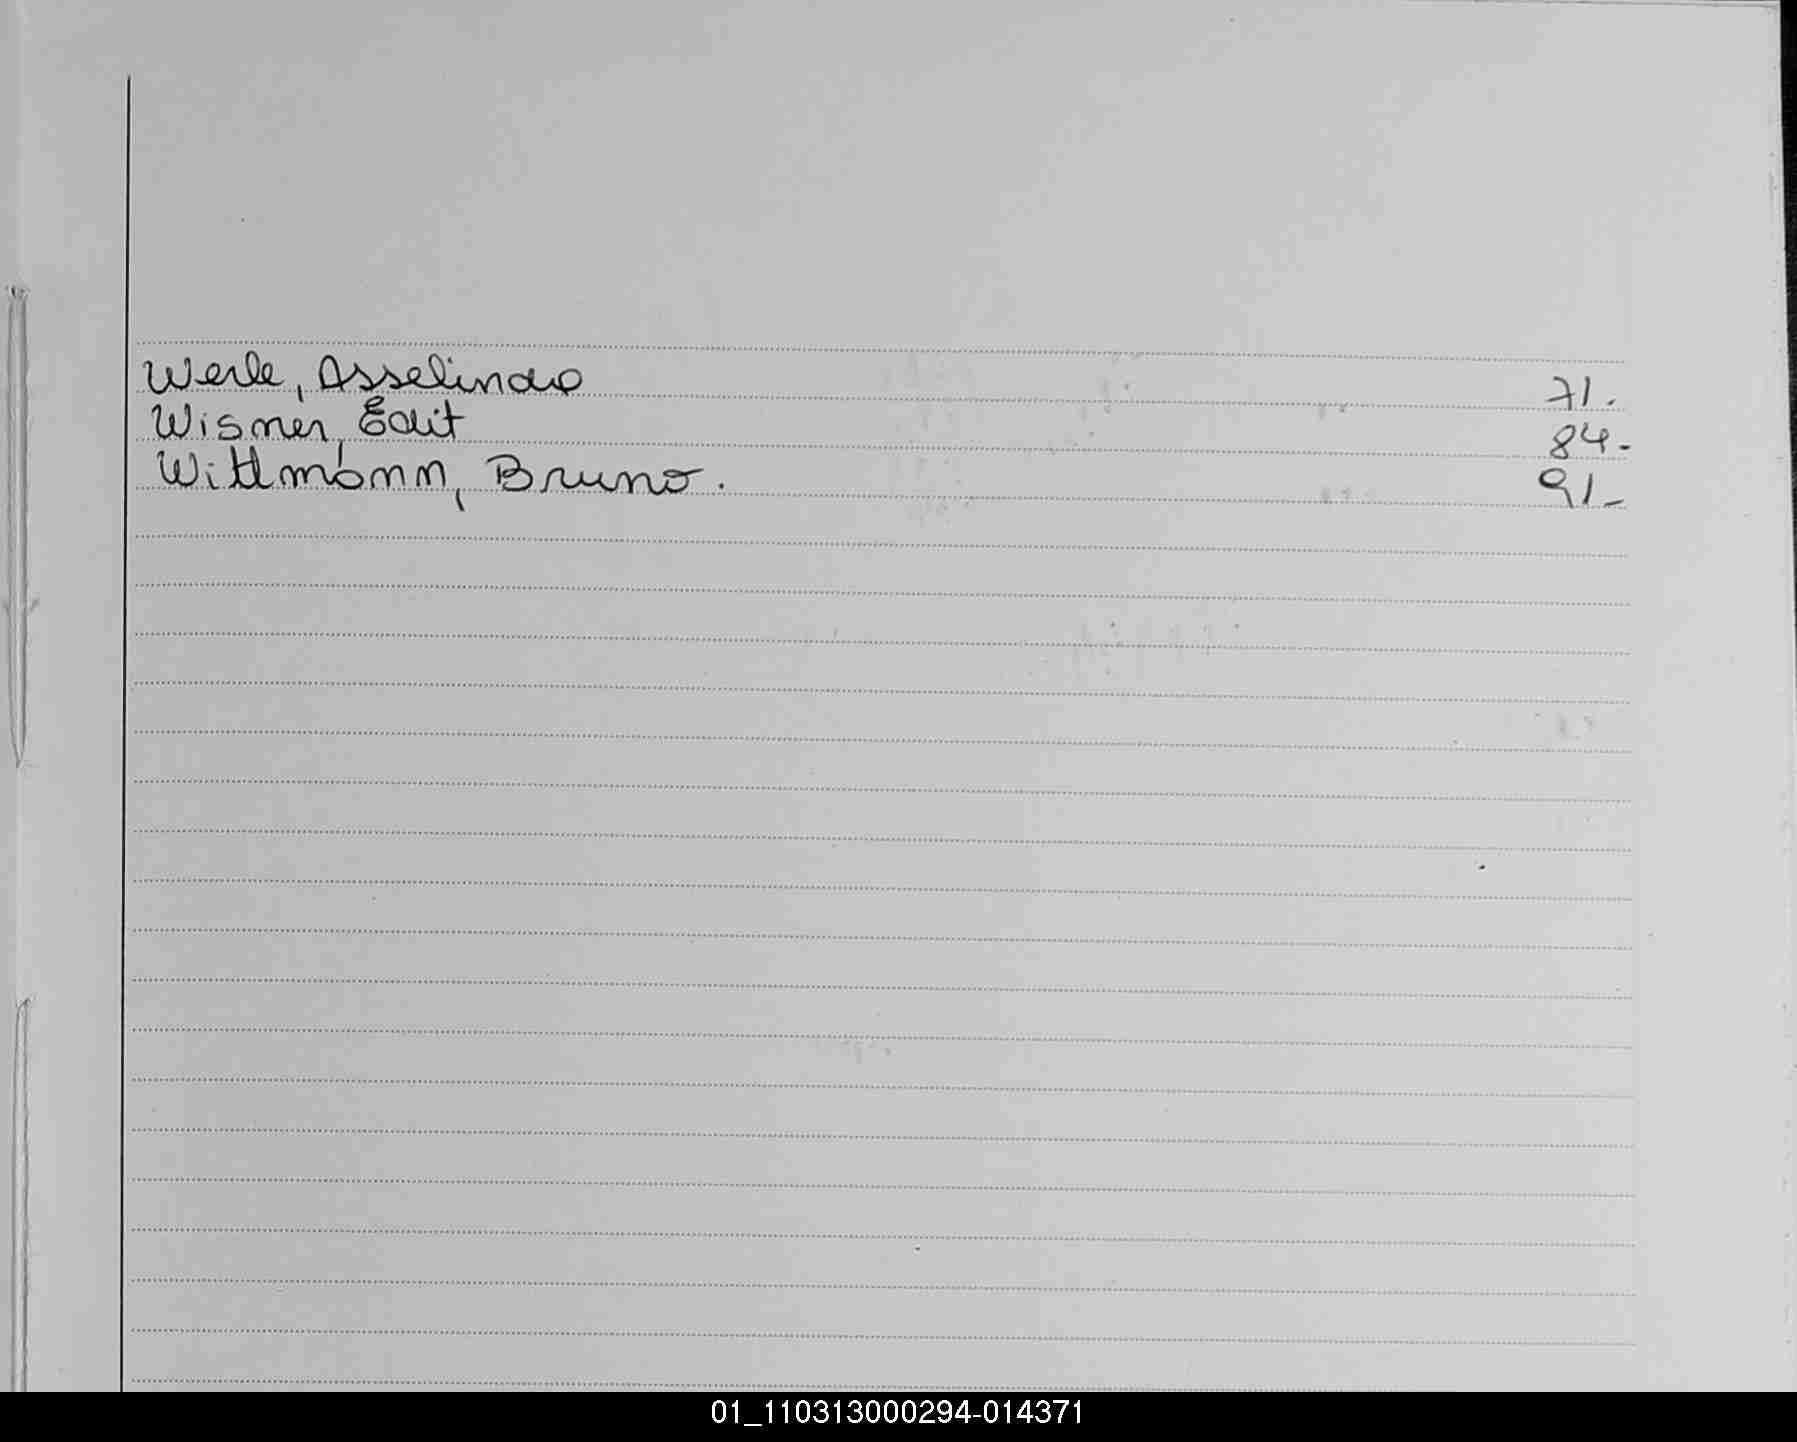 Werle, Asselindo 71.
Wismer, Edit 84-
Wittmann, Bruno. 91-
01_110313000294-014371